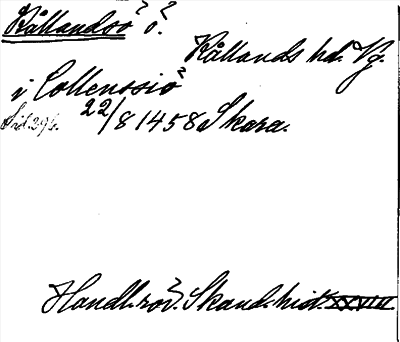 Kållandsö ö.
Kållands hd. Vg.
i Collenssiö
Sid. 296. 22/8 1458 Skara.
Handl. rör. Skand. hist. XXVIII